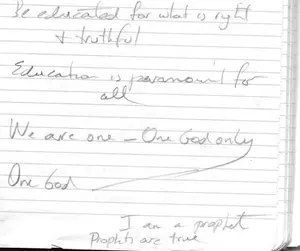 Be educated for what is right
& truthful
Education is paramount for
all
We are one - One God only
One God
I am a prophet
Prophets are true